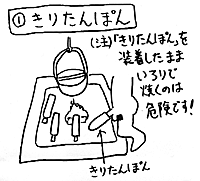 ① きりたんぽん
(注)「きりたんぽん」を
装着したまま
いろりで
焼くのは
危険です!
きりたんぽん